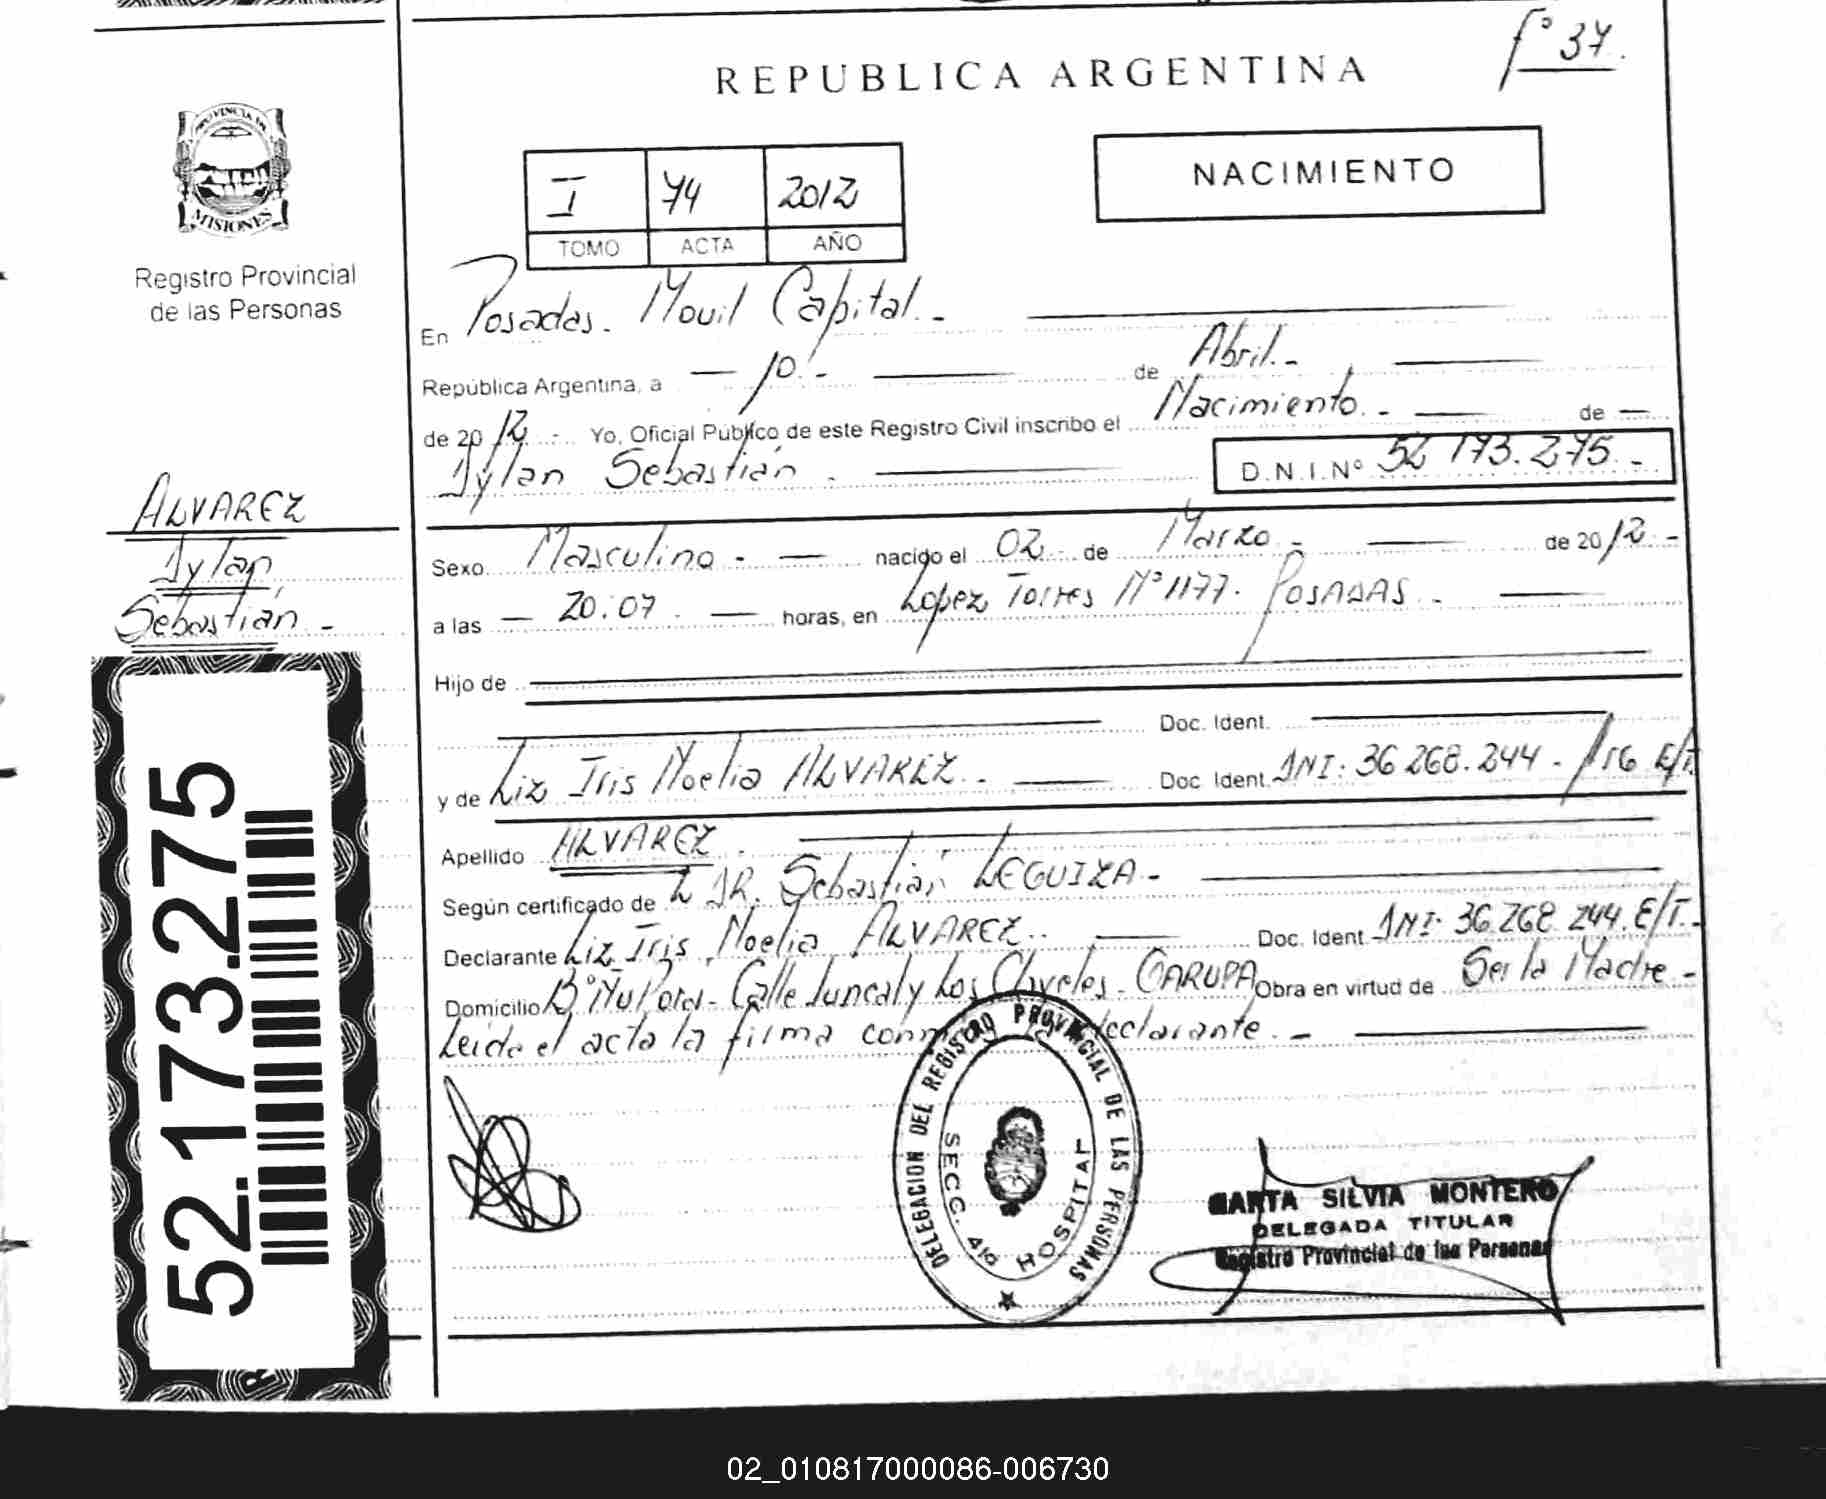 fº 37.
REPUBLICA ARGENTINA
PROVINCIA DE
MISIONES
Registro Provincial
de las Personas
NACIMIENTO
I 74 2012
TOMO ACTA AÑO
En Posadas. Movil Capital.-
República Argentina, a — 10.- de Abril.-
de 2012.- Yo, Oficial Público de este Registro Civil inscribo el Nacimiento.- de —
Dylan Sebastián. D.N.I.Nº 52 173.275.-
ALVAREZ
Dylan
Sebastián -
Sexo Masculino - nacido el 02 de Marzo - de 2012 -
a las — 20:07. — horas, en Lopez Torres Nº 1177. POSADAS.-
Hijo de
Doc. Ident.
y de Liz Iris Noelia ALVAREZ.- Doc. Ident. DNI: 36 268.244.- /16 E/T.
Apellido ALVAREZ.
Según certificado de DR. Sebastián LEGUIZA.-
Declarante Liz Iris Noelia ALVAREZ.. Doc. Ident. DNI: 36.268.244.E/T.-
Domicilio Bº Ñu Porá - Calle Juncal y Los Claveles - GARUPA Obra en virtud de Ser la Madre -
Leída el acta la firma la declarante.-
52.173.275
DELEGACION DEL REGISTRO PROVINCIAL DE LAS PERSONAS
SECC. HOSPITAL
MARTA SILVIA MONTERO
DELEGADA TITULAR
Registro Provincial de las Personas
02_010817000086-006730